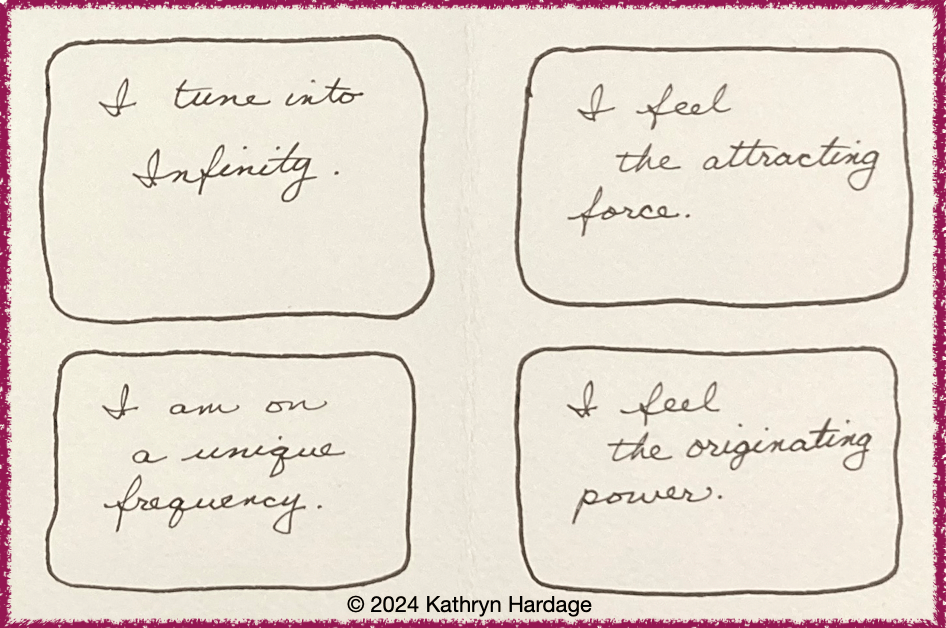 I tune into
Infinity.
I feel
the attracting
force.
I am on
a unique
frequency.
I feel
the originating
power.
© 2024 Kathryn Hardage